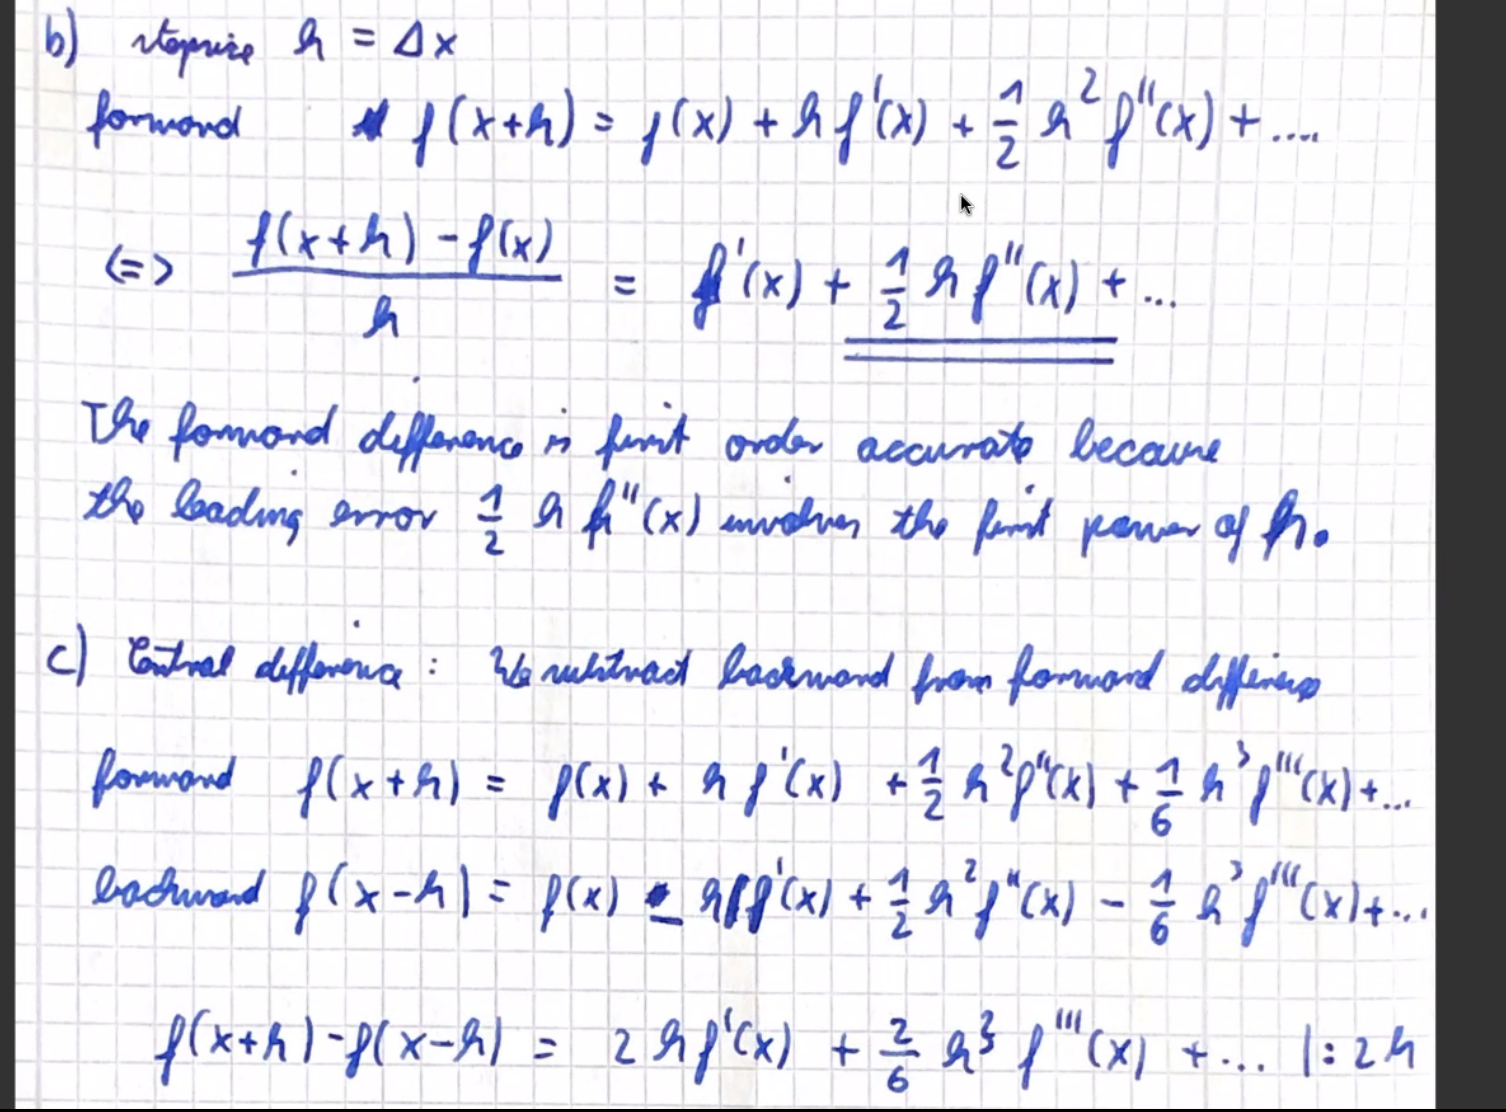 b) stepsize h = Δx
forward f(x+h) = f(x) + h f'(x) + 1/2 h² f''(x) + ....
<=> (f(x+h) - f(x))/h = f'(x) + 1/2 h f''(x) + ...
The forward difference is first order accurate because
the leading error 1/2 h f''(x) involves the first power of h.
c) Central difference : We subtract backward from forward difference
forward f(x+h) = f(x) + h f'(x) + 1/2 h² f''(x) + 1/6 h³ f'''(x) + ...
backward f(x-h) = f(x) - h f'(x) + 1/2 h² f''(x) - 1/6 h³ f'''(x) + ...
f(x+h) - f(x-h) = 2 h f'(x) + 2/6 h³ f'''(x) + ... |: 2h